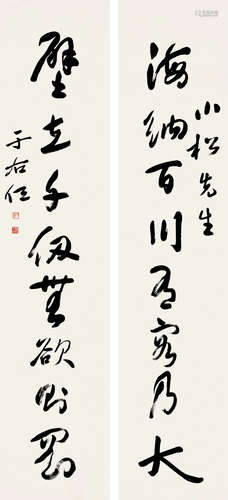 海納百川有容乃大
小松先生
壁立千仞無欲則剛
于右任